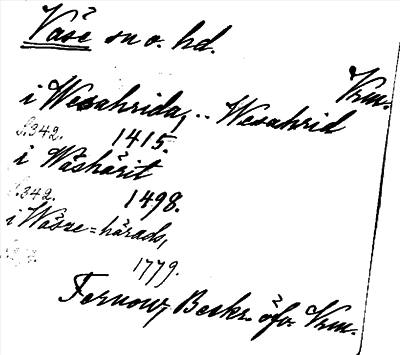 Väse sn o. hd.
Vrm.
i Wesahrida, .. Wesahrid
S.342. 1415.
i Wäshärit
S.342. 1498.
i Wäsze=härads,
1779.
Fernow, Beskr. öfv. Vrm.